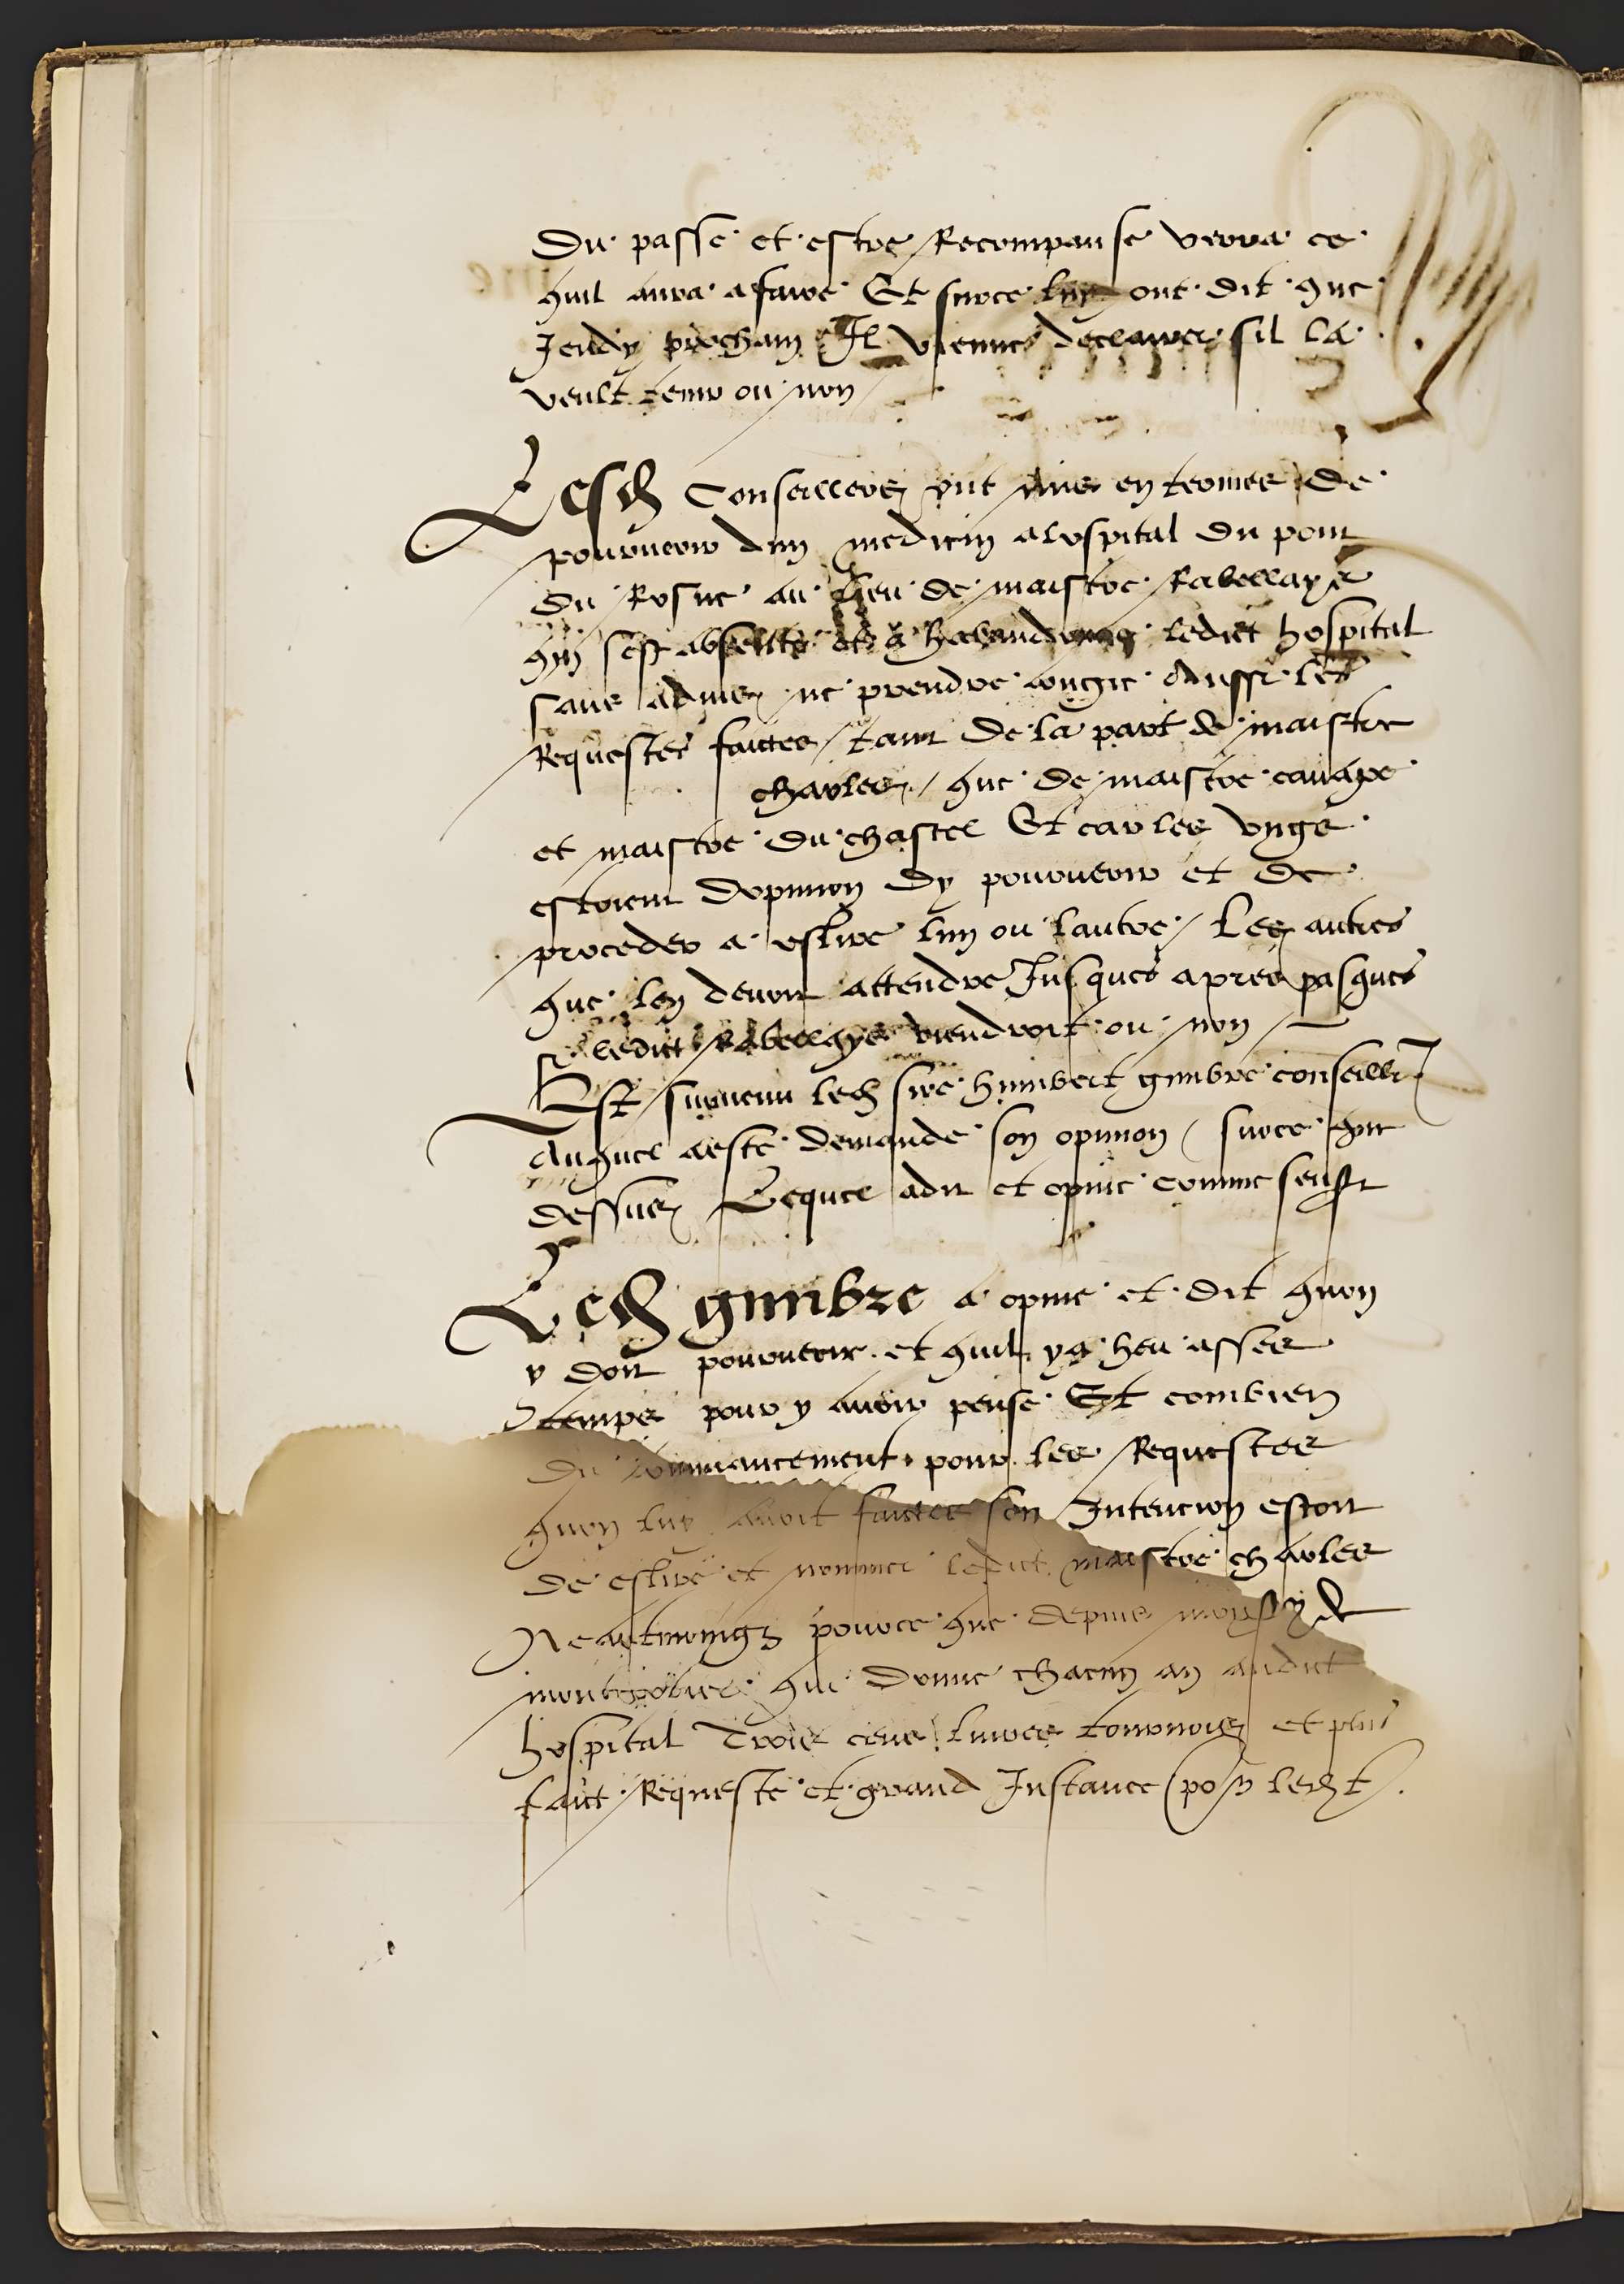 du passe et estre Recompanse verra ce
quil aura afaire Et surce luy ont dit que
Jeudy prochain Il vienne declairer sil la
veult tenir ou non
Lesd Conseillers ont mis en termes de
pourveoir dun medicin alospital du pont
du Rosne au lieu de maistre Rabellays
qui sest absente et a habandonne ledict hospital
sans adviser ne prendre congie Aussi les
Requestes faictes tant de la part de maistre
charles que de maistre canape
et maistre du chastel Et car les ungs
estoient dopinion dy pourveoir et de
proceder a eslire lun ou lautre Les autres
que lon devoit attendre Jusques apres pasques
si ledict Rabellays viendroit ou non
Est survenu led sire humbert gimbre conseiller
Auquel aeste demande son opinion surce que
dessus Lequel adit et opine comme sensuit
Led gimbre a opine et dit quon
y doit pourveoir et quil ya heu asses
temps pour y avoir pense Et combien
du commancement pour les Requestes
quon luy avoit faictes son Intencion estoit
de eslire et nommer ledict maistre charles
Neantmoings pource que depuis monsr de
montrotier qui donne chacun an audict
hospital Trois cens livres tournois et plus
faict Requeste et grand Instance pour led